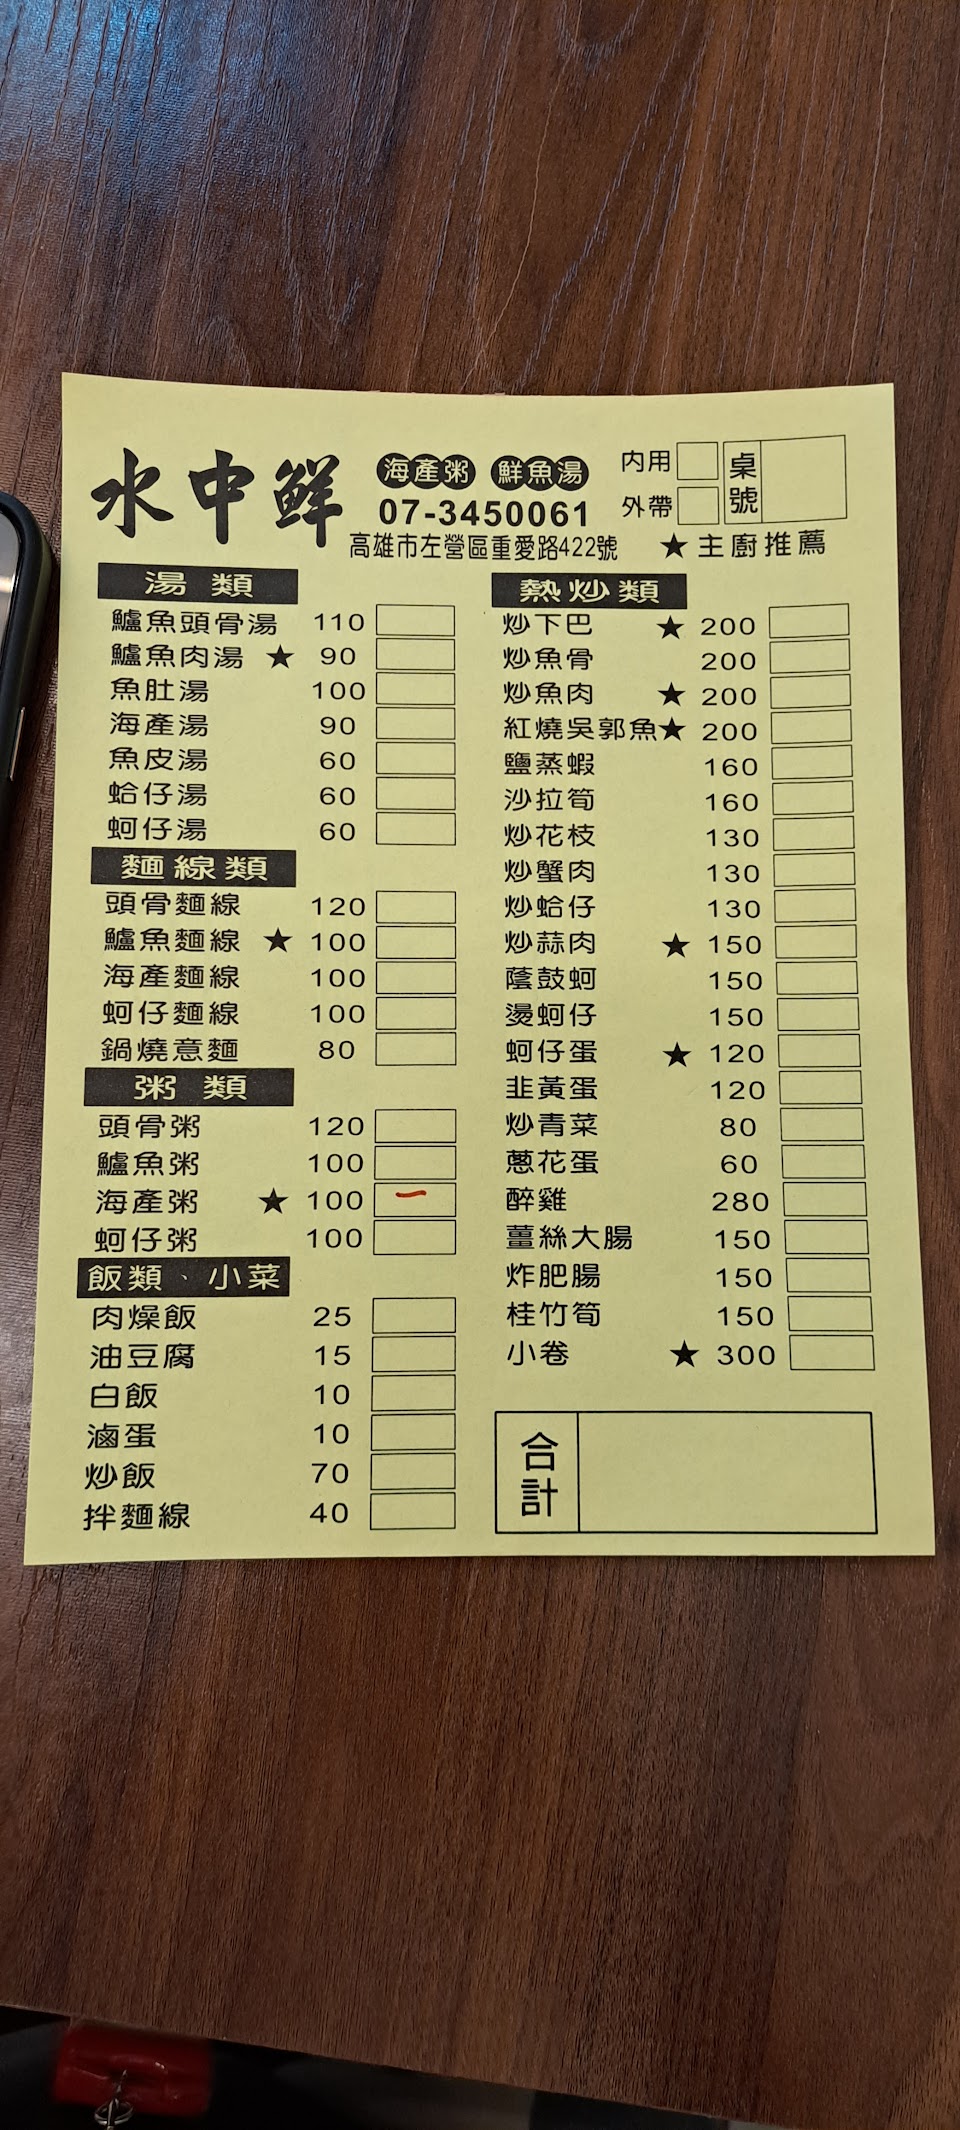 水中鮮
海產粥 鮮魚湯
07-3450061
高雄市左營區重愛路422號
內用
外帶
桌號
★主廚推薦
湯類
鱸魚頭骨湯 110
鱸魚肉湯 ★ 90
魚肚湯 100
海產湯 90
魚皮湯 60
蛤仔湯 60
蚵仔湯 60
麵線類
頭骨麵線 120
鱸魚麵線 ★ 100
海產麵線 100
蚵仔麵線 100
鍋燒意麵 80
粥類
頭骨粥 120
鱸魚粥 100
海產粥 ★ 100 一
蚵仔粥 100
飯類、小菜
肉燥飯 25
油豆腐 15
白飯 10
滷蛋 10
炒飯 70
拌麵線 40
熱炒類
炒下巴 ★ 200
炒魚骨 200
炒魚肉 ★ 200
紅燒吳郭魚★ 200
鹽蒸蝦 160
沙拉筍 160
炒花枝 130
炒蟹肉 130
炒蛤仔 130
炒蒜肉 ★ 150
蔭鼓蚵 150
燙蚵仔 150
蚵仔蛋 ★ 120
韭黃蛋 120
炒青菜 80
蔥花蛋 60
醉雞 280
薑絲大腸 150
炸肥腸 150
桂竹筍 150
小卷 ★ 300
合計